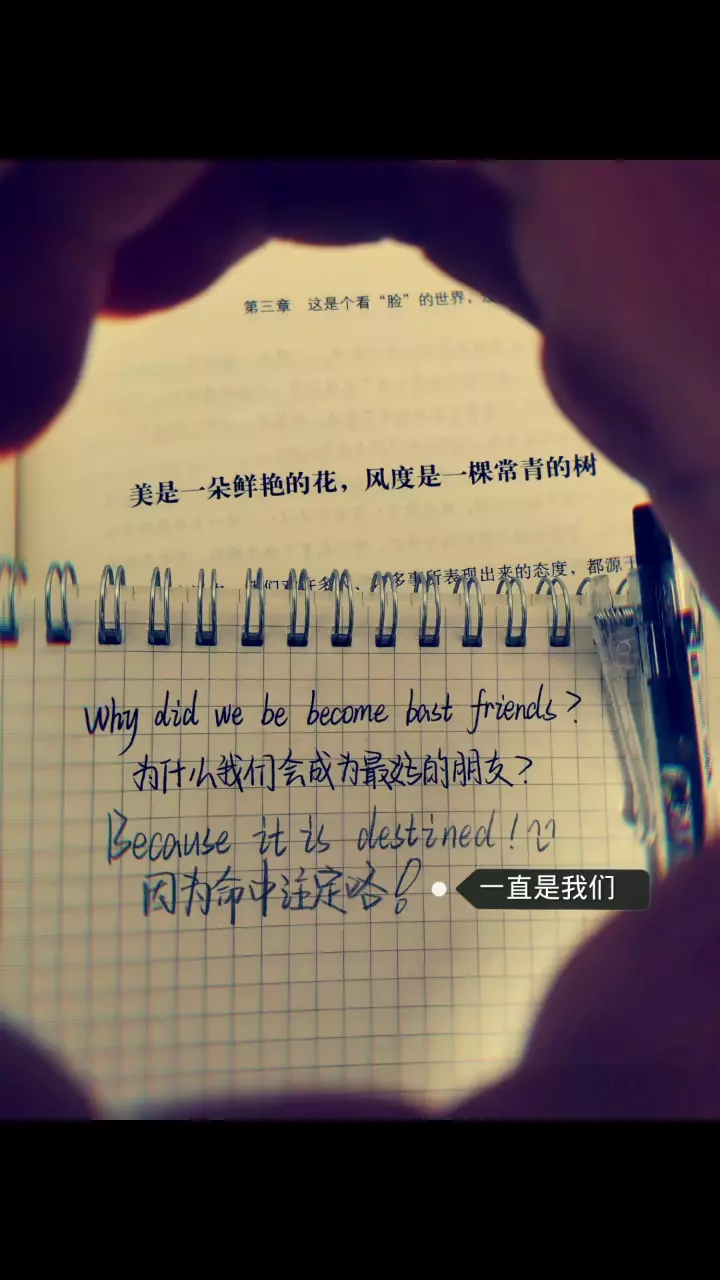 第三章 这是个看“脸”的世界，
美是一朵鲜艳的花，风度是一棵常青的树
多事所表现出来的态度，都源于
Why did we be become bast friends?
为什么我们会成为最好的朋友?
Because it is destined!
因为命中注定咯!
一直是我们